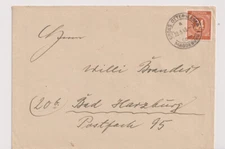 Herrn
Willi Brandes
20b Bad Harzburg
Postfach 95